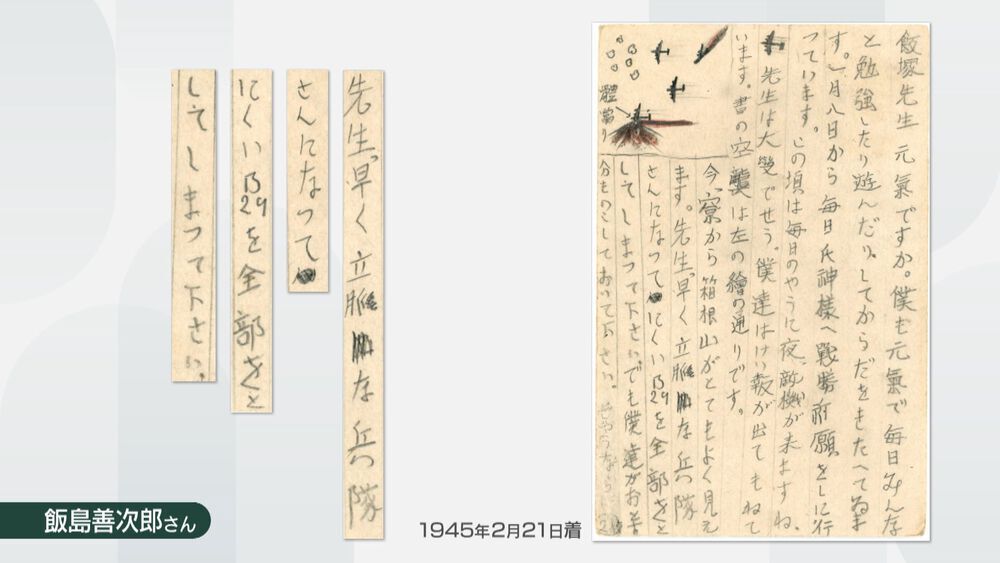 先生、早く立脈な兵隊
さんになつて
にくいB29を全部さくと
してしまつて下さい。
飯塚先生 元氣ですか。僕も元氣で毎日みんな
と勉強したり遊んだりしてからだをきたへてゐま
す。一月八日から毎日氏神様へ戰勝祈願をしに行
つています。この頃は毎日のやうに夜、敵機が来ますね、
先生は大変でせう。僕達はけい報が出てもねて
います。書の空襲は左の繪の通りです。
體當り
今、寮から箱根山がとてもよく見え
ます。先生、早く立脈な兵隊
さんになつてにくいB29を全部さくと
してしまつて下さい。でも僕達が
分ものこしておいて下さい。さやうなら
飯島善次郎さん
1945年2月21日着